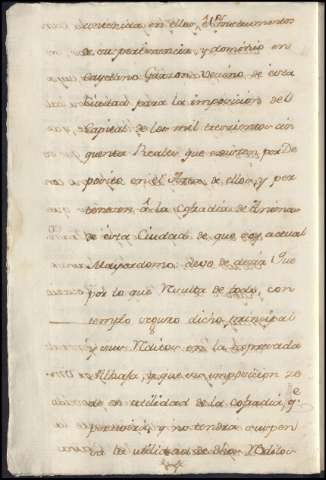 contenida en ellos, Ynstrumentos
de su pertenencia, y dominio en
Cayetano Garzon Vecino de esta
Ciudad para la imposicion del
Capital de los mil trescientos cin
quenta Reales que existen por De
posito en el Arca de ellos, y per
tenecen á la Cofradia de Animas
de esta Ciudad de que soy actual
Mayordomo devo de decir Que
por lo que Resulta de todo, con
templo seguro dicho principal
y sus Reditos en la expresada
Alhaja, y que su imposicion ze
de en utilidad de la cofradia, q.e
pues no tendra suspen
sa la utilidad de dhos Reditos